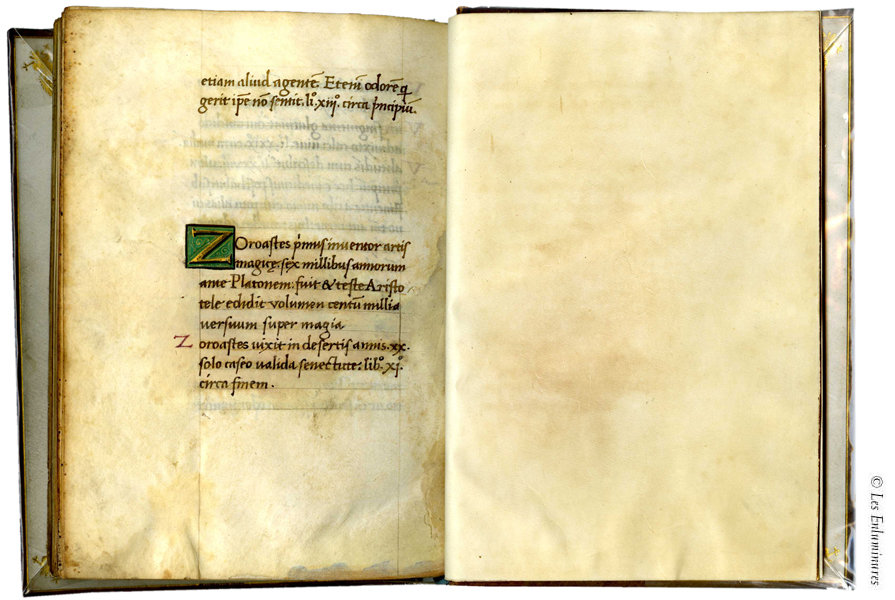 etiam aliud agentẽ. Etenĩ odorẽ q̃
gerit ip̃e nõ sentit. li.º xiij.º circa p̃ncipiũ.
Zoroastes p̃mus inventor artis
magicę. sex millibus annorum
ante Platonem. fuit & teste Aristo
tele edidit volumen centũ millia
versuum super magia
Zoroastes vixit in desertis annis .xx.
solo caseo valida senectute: lib.º xj.º
circa finem.
© Les Enluminures